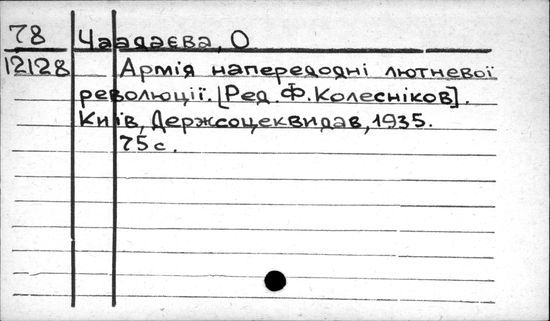 78 Чаадаєва, О
12128 Армія напередодні лютневої
революції. [Ред. Ф. Колесніков].
Київ, Держсоцеквидав, 1935.
75 с.